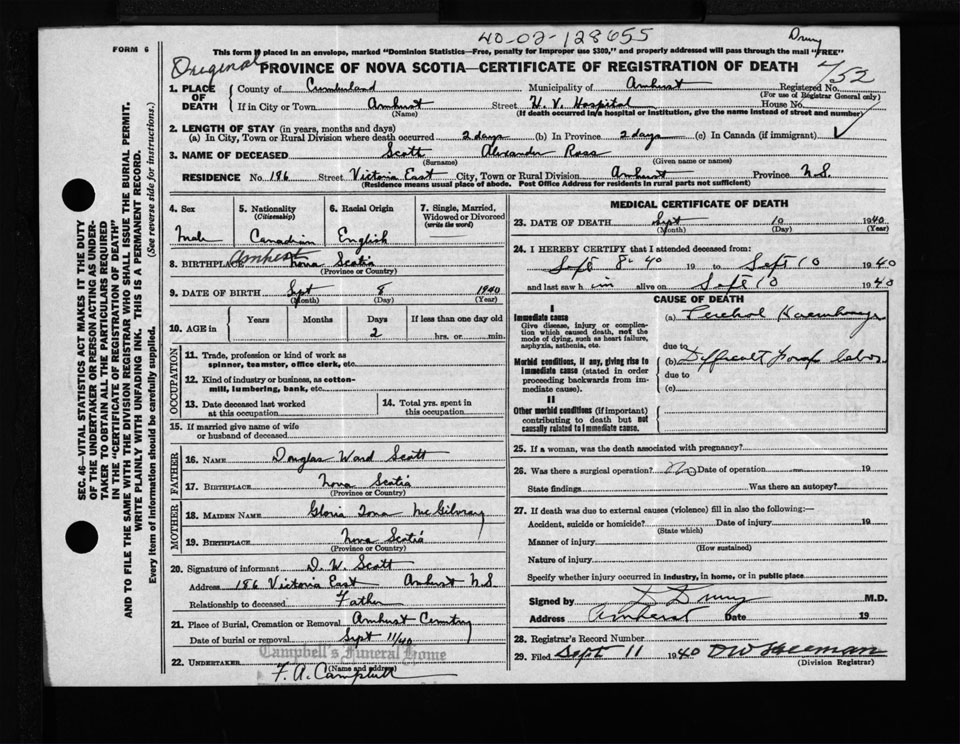 40-02-128655
FORM 6
This form if placed in an envelope, marked "Dominion Statistics—Free, penalty for improper use $300," and properly addressed will pass through the mail "FREE"
Drury
Original
PROVINCE OF NOVA SCOTIA—CERTIFICATE OF REGISTRATION OF DEATH
752
1. PLACE OF DEATH
County of Cumberland Municipality of Amherst Registered No.
(For use of Registrar General only)
If in City or Town Amherst Street H. V. Hospital House No.
(Name) (If death occurred in a hospital or institution, give the name instead of street and number)
2. LENGTH OF STAY (in years, months and days)
(a) In City, Town or Rural Division where death occurred 2 days (b) In Province 2 days (c) In Canada (if immigrant)
3. NAME OF DECEASED Scott Alexander Ross
(Surname) (Given name or names)
RESIDENCE No. 186 Street Victoria East City, Town or Rural Division Amherst Province N.S.
(Residence means usual place of abode. Post Office Address for residents in rural parts not sufficient)
4. Sex Male
5. Nationality (Citizenship) Canadian
6. Racial Origin English
7. Single, Married, Widowed or Divorced (write the word)
8. BIRTHPLACE Amherst Nova Scotia
(Province or Country)
9. DATE OF BIRTH Sept 8 1940
(Month) (Day) (Year)
10. AGE in Years Months Days If less than one day old
2 hrs. or min.
OCCUPATION
11. Trade, profession or kind of work as spinner, teamster, office clerk, etc.
12. Kind of industry or business, as cotton-mill, lumbering, bank, etc.
13. Date deceased last worked at this occupation
14. Total yrs. spent in this occupation
15. If married give name of wife or husband of deceased
FATHER
16. NAME Douglas Ward Scott
17. BIRTHPLACE Nova Scotia
(Province or Country)
MOTHER
18. MAIDEN NAME Gloria Iona McGilvray
19. BIRTHPLACE Nova Scotia
(Province or Country)
20. Signature of informant D. W. Scott
Address 186 Victoria East Amherst N.S.
Relationship to deceased Father
21. Place of Burial, Cremation or Removal Amherst Cemetry
Date of burial or removal Sept 11/40
Campbell's Funeral Home
22. UNDERTAKER F. A. Campbell
(Name and address)
MEDICAL CERTIFICATE OF DEATH
23. DATE OF DEATH Sept 10 1940
(Month) (Day) (Year)
24. I HEREBY CERTIFY that I attended deceased from:
Sept 8-40 19 to Sept 10 1940
and last saw h im alive on Sept 10 1940
CAUSE OF DEATH
I
Immediate cause
Give disease, injury or complication which caused death, not the mode of dying, such as heart failure, asphyxia, asthenia, etc.
(a) Cerebral Haemhorage
due to
Morbid conditions, if any, giving rise to immediate cause (stated in order proceeding backwards from immediate cause).
(b) Difficult labor
due to
(c)
II
Other morbid conditions (if important) contributing to death but not causally related to immediate cause.
25. If a woman, was the death associated with pregnancy?
26. Was there a surgical operation? No Date of operation — 19
State findings Was there an autopsy?
27. If death was due to external causes (violence) fill in also the following:—
Accident, suicide or homicide? Date of injury 19
(State which)
Manner of injury
(How sustained)
Nature of injury
Specify whether injury occurred in industry, in home, or in public place
Signed by D Drury M.D.
Address Amherst Date 19
28. Registrar's Record Number
29. Filed Sept 11 1940
(Division Registrar)
SEC. 46—VITAL STATISTICS ACT MAKES IT THE DUTY
OF THE UNDERTAKER OR PERSON ACTING AS UNDERTAKER TO OBTAIN ALL THE PARTICULARS REQUIRED
IN THE "CERTIFICATE OF REGISTRATION OF DEATH"
AND TO FILE THE SAME WITH THE DIVISION REGISTRAR WHO SHALL ISSUE THE BURIAL PERMIT.
WRITE PLAINLY WITH UNFADING INK. THIS IS A PERMANENT RECORD.
Every item of information should be carefully supplied. (See reverse side for instructions.)